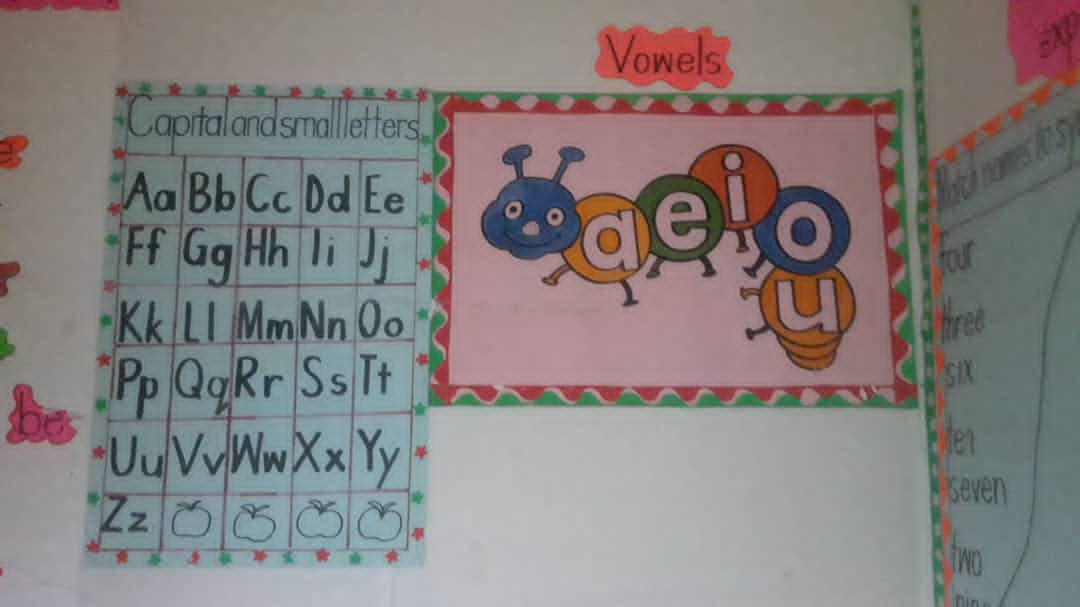 Vowels
Capital and small letters
Aa Bb Cc Dd Ee
Ff Gg Hh Ii Jj
Kk Ll Mm Nn Oo
Pp Qq Rr Ss Tt
Uu Vv Ww Xx Yy
Zz
a e i o u
be
Match names to
four
three
six
ten
seven
two